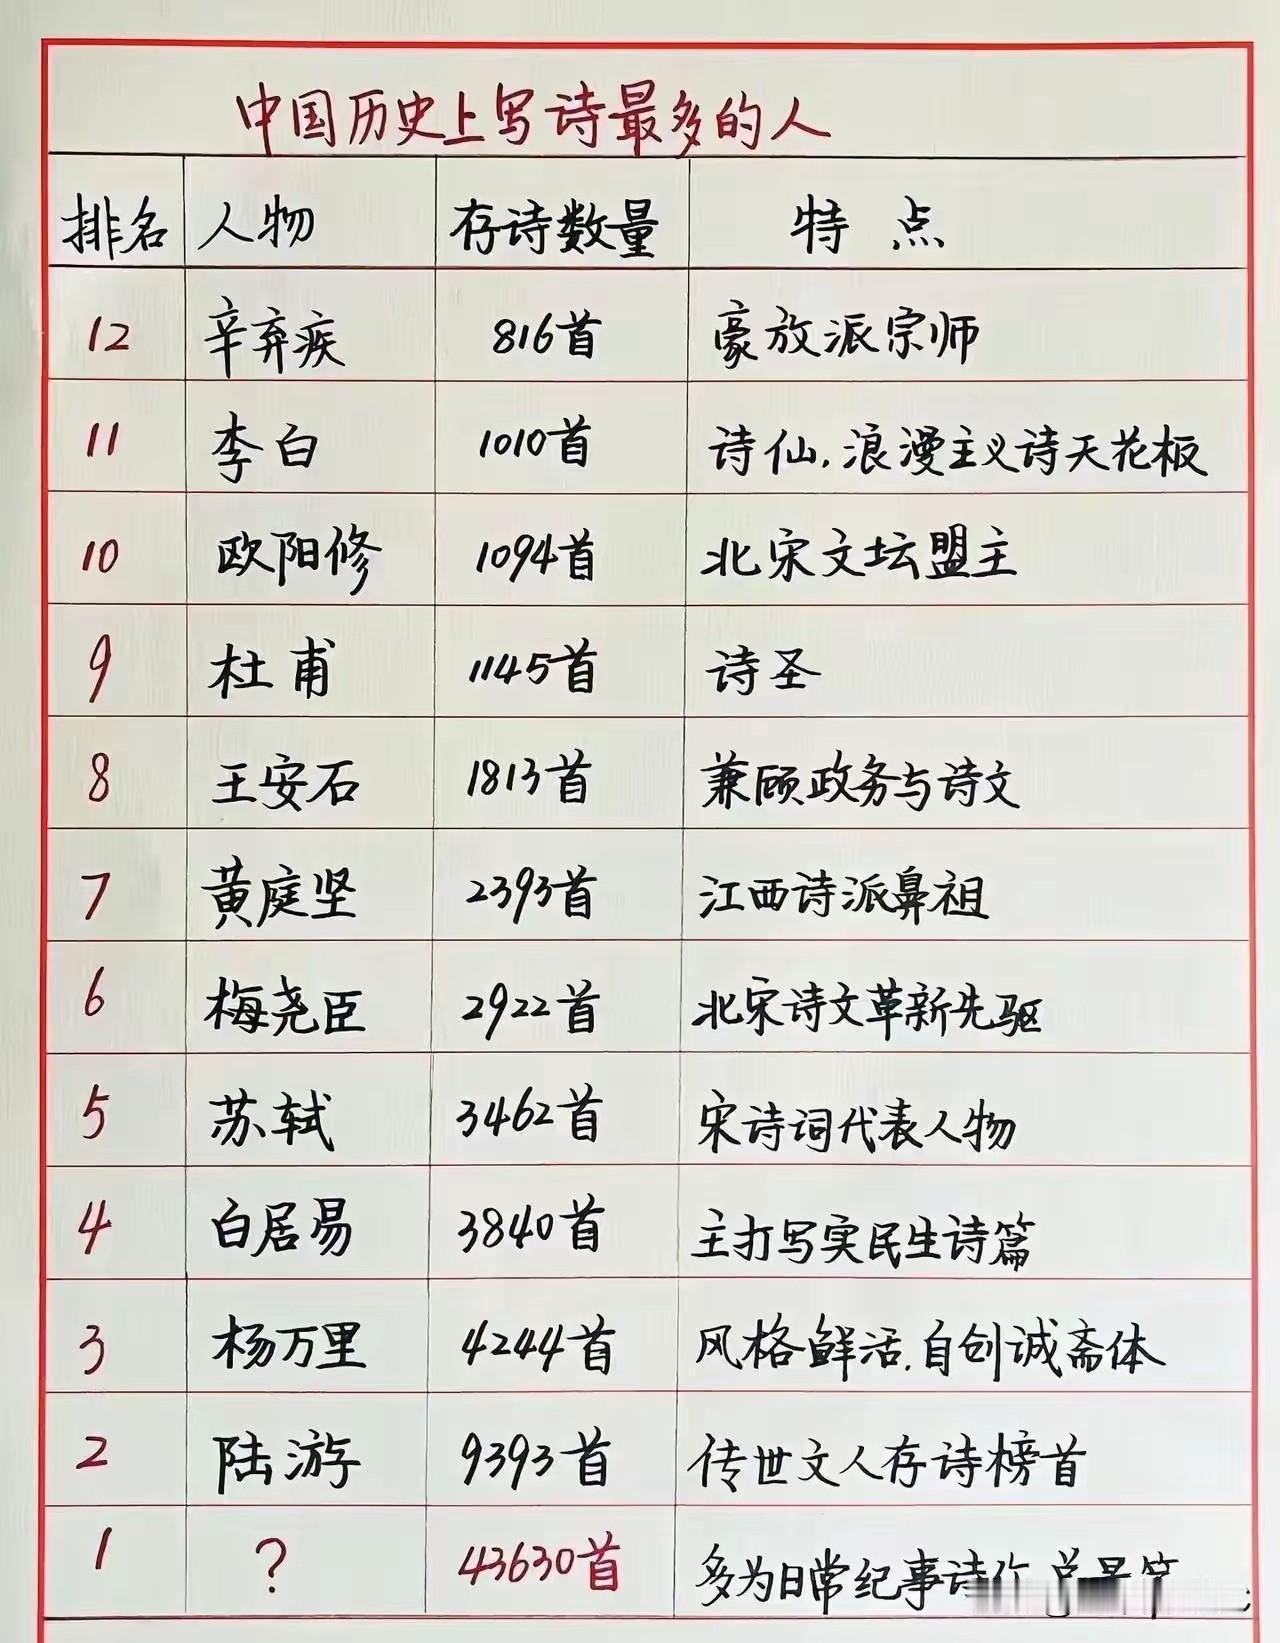 中国历史上写诗最多的人
排名 人物 存诗数量 特点
12 辛弃疾 816首 豪放派宗师
11 李白 1010首 诗仙.浪漫主义诗天花板
10 欧阳修 1094首 北宋文坛盟主
9 杜甫 1145首 诗圣
8 王安石 1813首 兼顾政务与诗文
7 黄庭坚 2393首 江西诗派鼻祖
6 梅尧臣 2922首 北宋诗文革新先驱
5 苏轼 3462首 宋诗词代表人物
4 白居易 3840首 主打写实民生诗篇
3 杨万里 4244首 风格鲜活.自创诚斋体
2 陆游 9393首 传世文人存诗榜首
1 ? 43630首 多为日常纪事诗